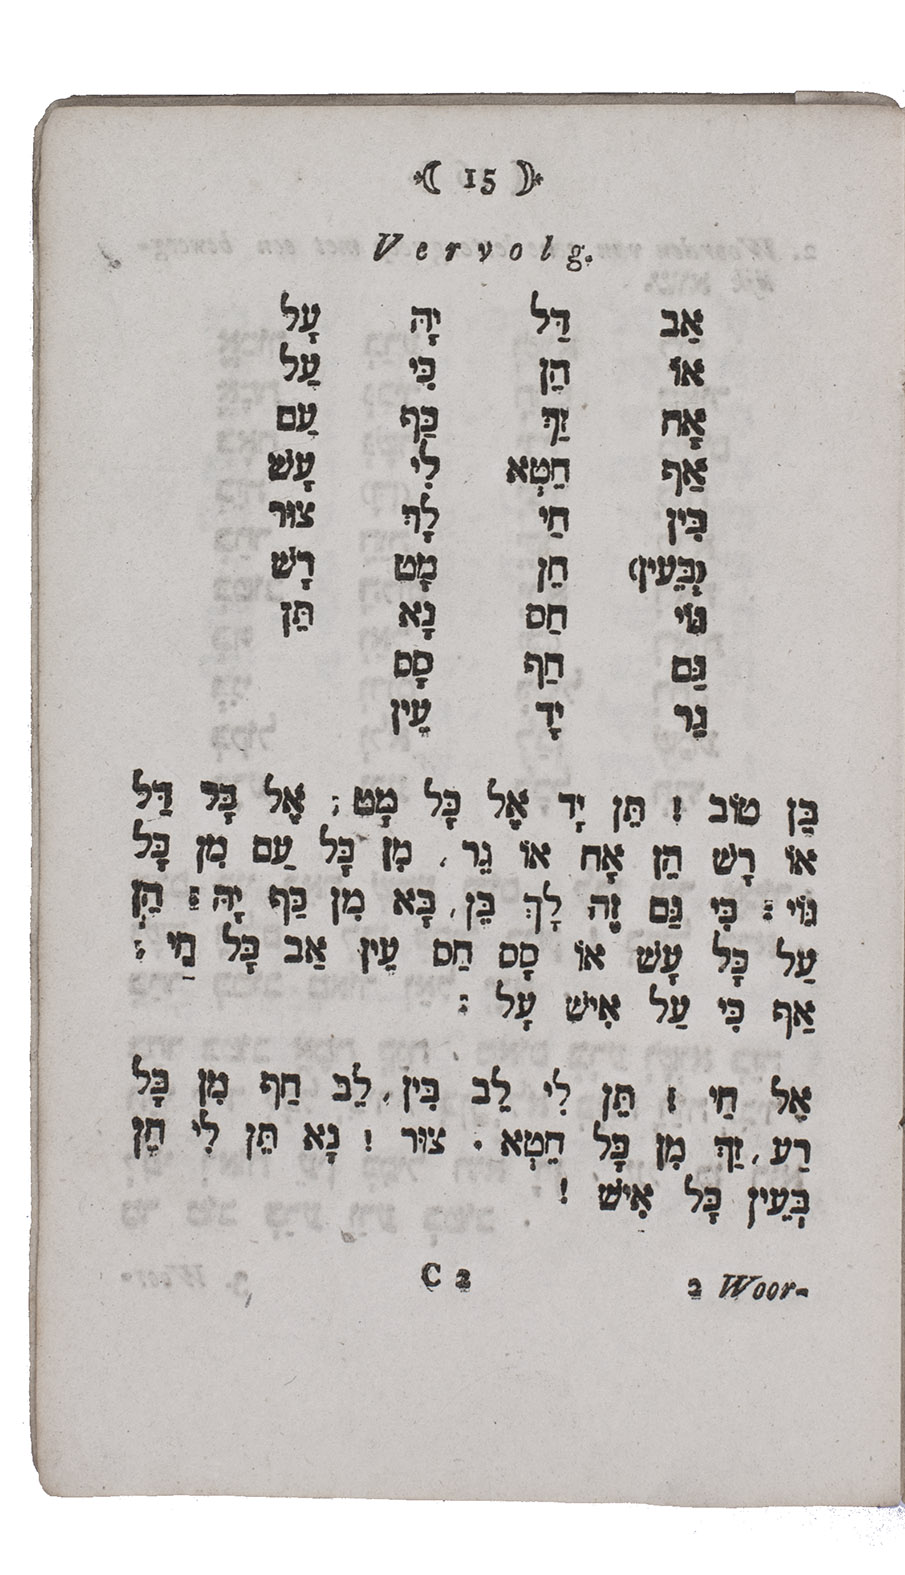 ( 15 )
Vervolg.
אַב דַּל יָהּ עָל
אוֹ הֵן כִּי עַל
אָח זַךְ כַּף עַם
אַף חֵטְא לִי עָשׁ
בִּין חַי לָךְ צוּר
(בְּעֵין) חֵן מָט רָשׁ
גּוֹי חַם נָא תֵּן
גַּם חַף סָם
גֵּר יָד עֵין
בֵּן טוֹב ! תֵּן יָד אֶל כָּל מָט ; אֶל כָּל דַּל
אוֹ רָשׁ הֵן אָח אוֹ גֵר , מִן כָּל עַם מִן כָּל
גּוֹי : כִּי גַּם זֶה לָךְ בֵּן , בָּא מִן כַּף יָהּ : הֵן
עַל כָּל עָשׁ אוֹ סָם חַם עֵין אַב כָּל חַי :
אַף כִּי עַל אִישׁ עָל :
אֵל חַי ! תֵּן לִי לֵב בִּין , לֵב חַף מִן כָּל
רַע , זַךְ מִן כָּל חֵטְא . צוּר ! נָא תֵּן לִי חֵן
בְּעֵין כָּל אִישׁ !
C 2 2 Woor-